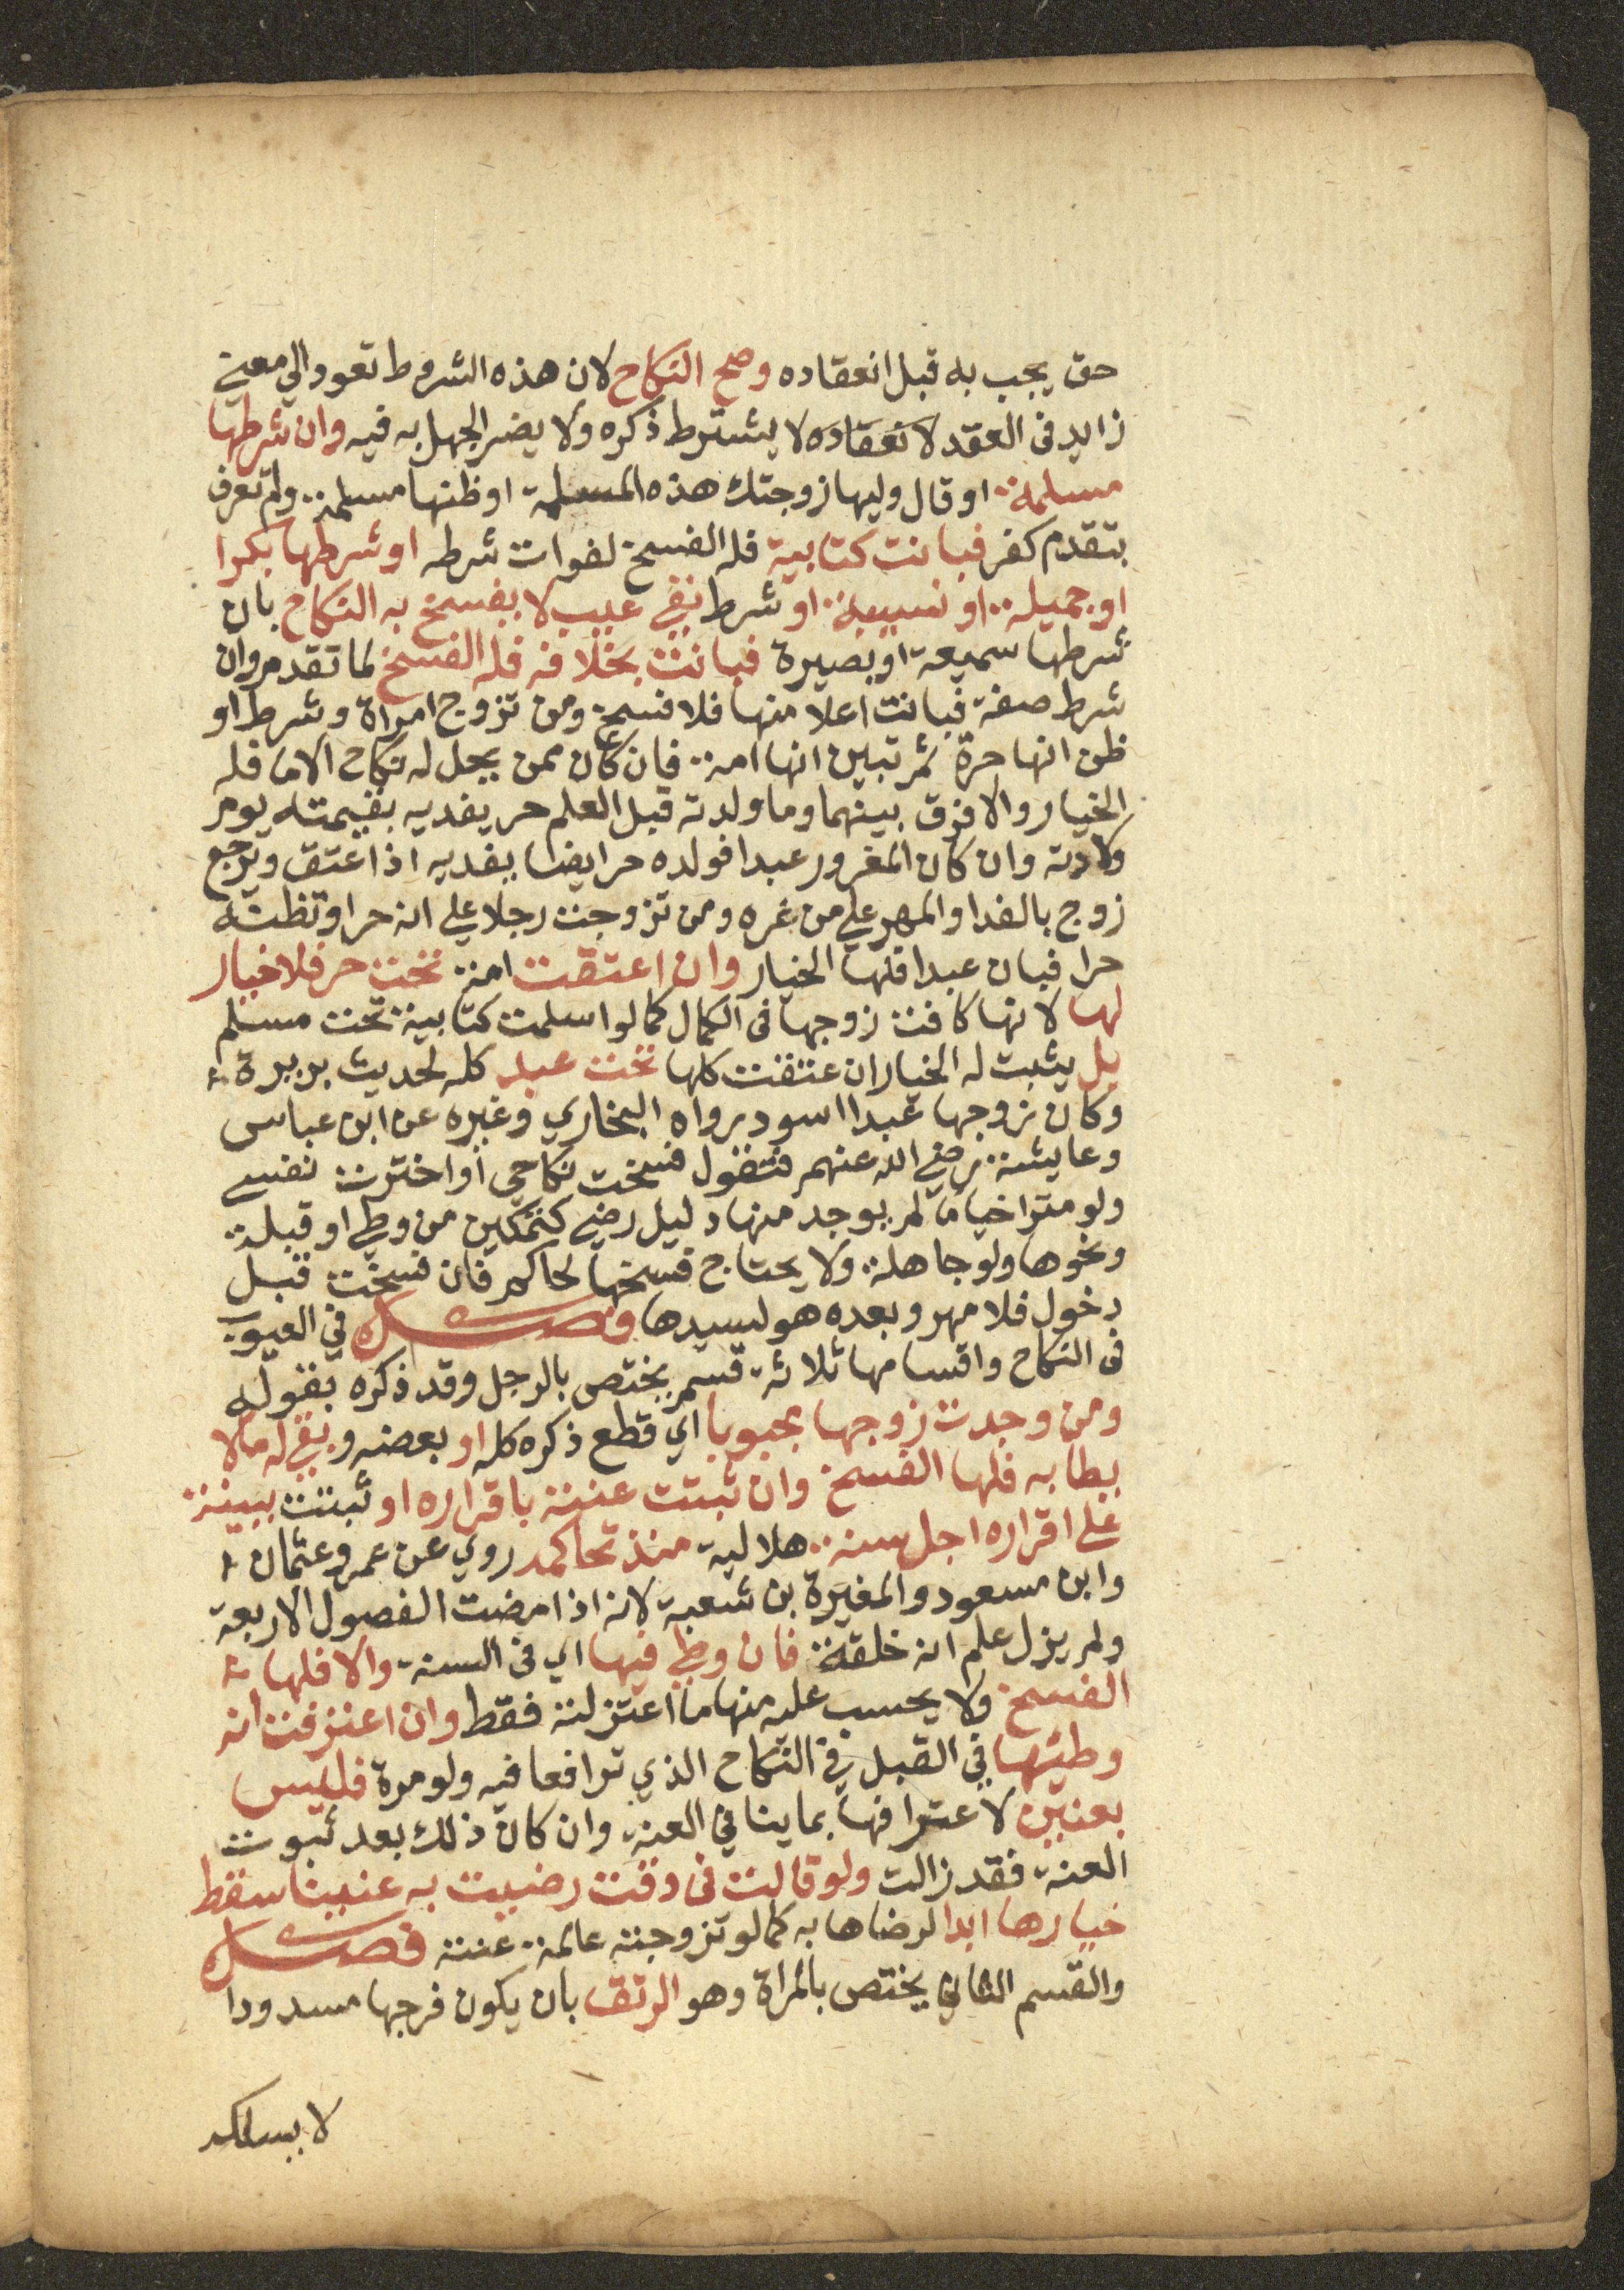 حق يجب به قبل انعقاده وصح النكاح لان هذه الشروط تعود الي معني
زايد في العقد لانعقاده لا يشترط ذكره ولا يضر الجهل به فيه وان شرطها
مسلمة او قال وليها زوجتك هذه المسلمة او ظنها مسلمة ولم تعرف
بتقدم كفر فبانت كتابية فله الفسخ لفوات شرطه او شرطها بكرا
او جميلة او نسيبة او شرط نفي عيب لا يفسخ به النكاح بان
شرطها سميعة او بصيرة فبانت بخلافه فله الفسخ لما تقدم وان
شرط صفة فبانت اعلا منها فلا فسخ ومن تزوج امراة وشرط او
ظن انها حرة ثم تبين انها امة فان كان ممن يحل له نكاح الاما فله
الخيار والا فرق بينهما وما ولدته قبل العلم حر يفديه بقيمته يوم
ولادته وان كان المغرور عبدا فولده حر ايضا يفديه اذا عتق ويرجع
زوج بالفدا والمهر علي من غره ومن تزوجت رجلا علي انه حر او تظنه
حرا فبان عبدا فلها الخيار وان اعتقت امة تحت حر فلا خيار
لها لانها كافت زوجها في الكمال كما لو اسلمت كتابية تحت مسلم
بل يثبت له الخيار ان عتقت كلها تحت عبد كله لحديث بريرة
وكان زوجها عبدا اسود رواه البخاري وغيره عن ابن عباس
وعايشة رضي الله عنهم فتقول فسخت نكاحي او اخترت نفسي
ولو متراخيا ما لم يوجد منها دليل رضي كتمكين من وطي او قبلة
ونحوها ولو جاهلة ولا يحتاج فسخها لحاكم فان فسخت قبل
دخول فلا مهر وبعده هو لسيدها فصل في العيوب
في النكاح واقسامها ثلاثة قسم يختص بالرجل وقد ذكره بقوله
ومن وجدت زوجها مجبوبا اي قطع ذكره كله او بعضه وبقي له مالا
يطا به فلها الفسخ وان ثبتت عنته باقراره او ثبتت ببينة
علي اقراره اجل سنة هلالية منذ تحاكمه روي عن عمر وعثمان
وابن مسعود والمغيرة بن شعبة لانه اذا مضت الفصول الاربعة
ولم يزل علم انه خلقة فان وطي فيها اي في السنة والا فلها
الفسخ ولا يحسب عليه منها ما اعتزلته فقط وان اعترفت انه
وطئها في القبل في النكاح الذي ترافعا فيه ولو مرة فليس
بعنين لاعترافها بما ينافي العنة وان كان ذلك بعد ثبوت
العنة فقد زالت ولو قالت في وقت رضيت به عنينا سقط
خيارها ابدا لرضاها به كما لو تزوجته عالمة عنته فصل
والقسم الثاني يختص بالمراة وهو الرتق بان يكون فرجها مسدودا
لا يسلكه